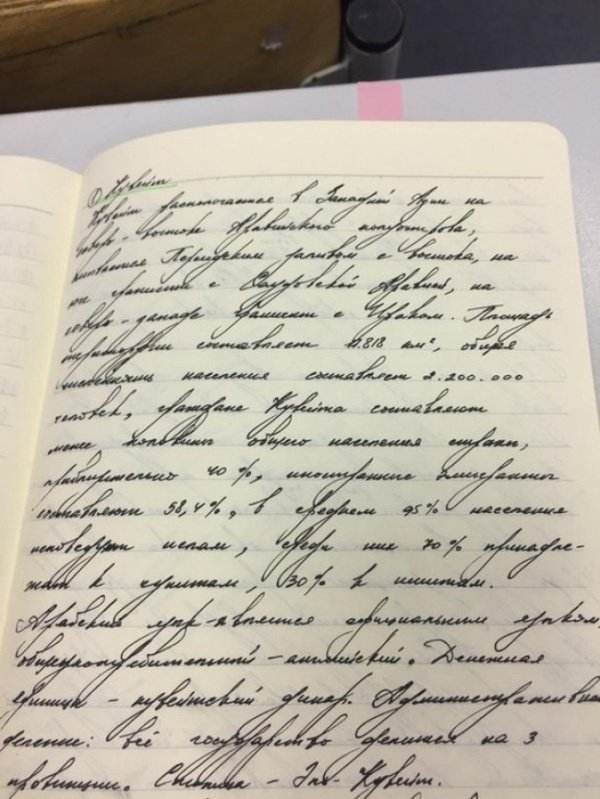 ① Кувейт
Кувейт расположенная в Западной Азии на
северо-востоке Аравийского полуострова,
омывается Персидским заливом с востока, на
юге граничит с Саудовской Аравией, на
северо-западе граничит с Ираком. Площадь
территории составляет 17.818 км², общая
численность населения составляет 2.200.000
человек, граждане Кувейта составляют
менее половины общего населения страны,
приблизительно 40%, иностранные эмигранты
составляют 58,4%, в среднем 95% населения
исповедует ислам, среди них 70% принадле-
жат к суннитам, 30% к шиитам.
Арабский язык является официальным языком,
общеупотребительный - английский. Денежная
единица - кувейтский динар. Административное
деление: всё государство делится на 3
провинции. Столица - Эль-Кувейт.